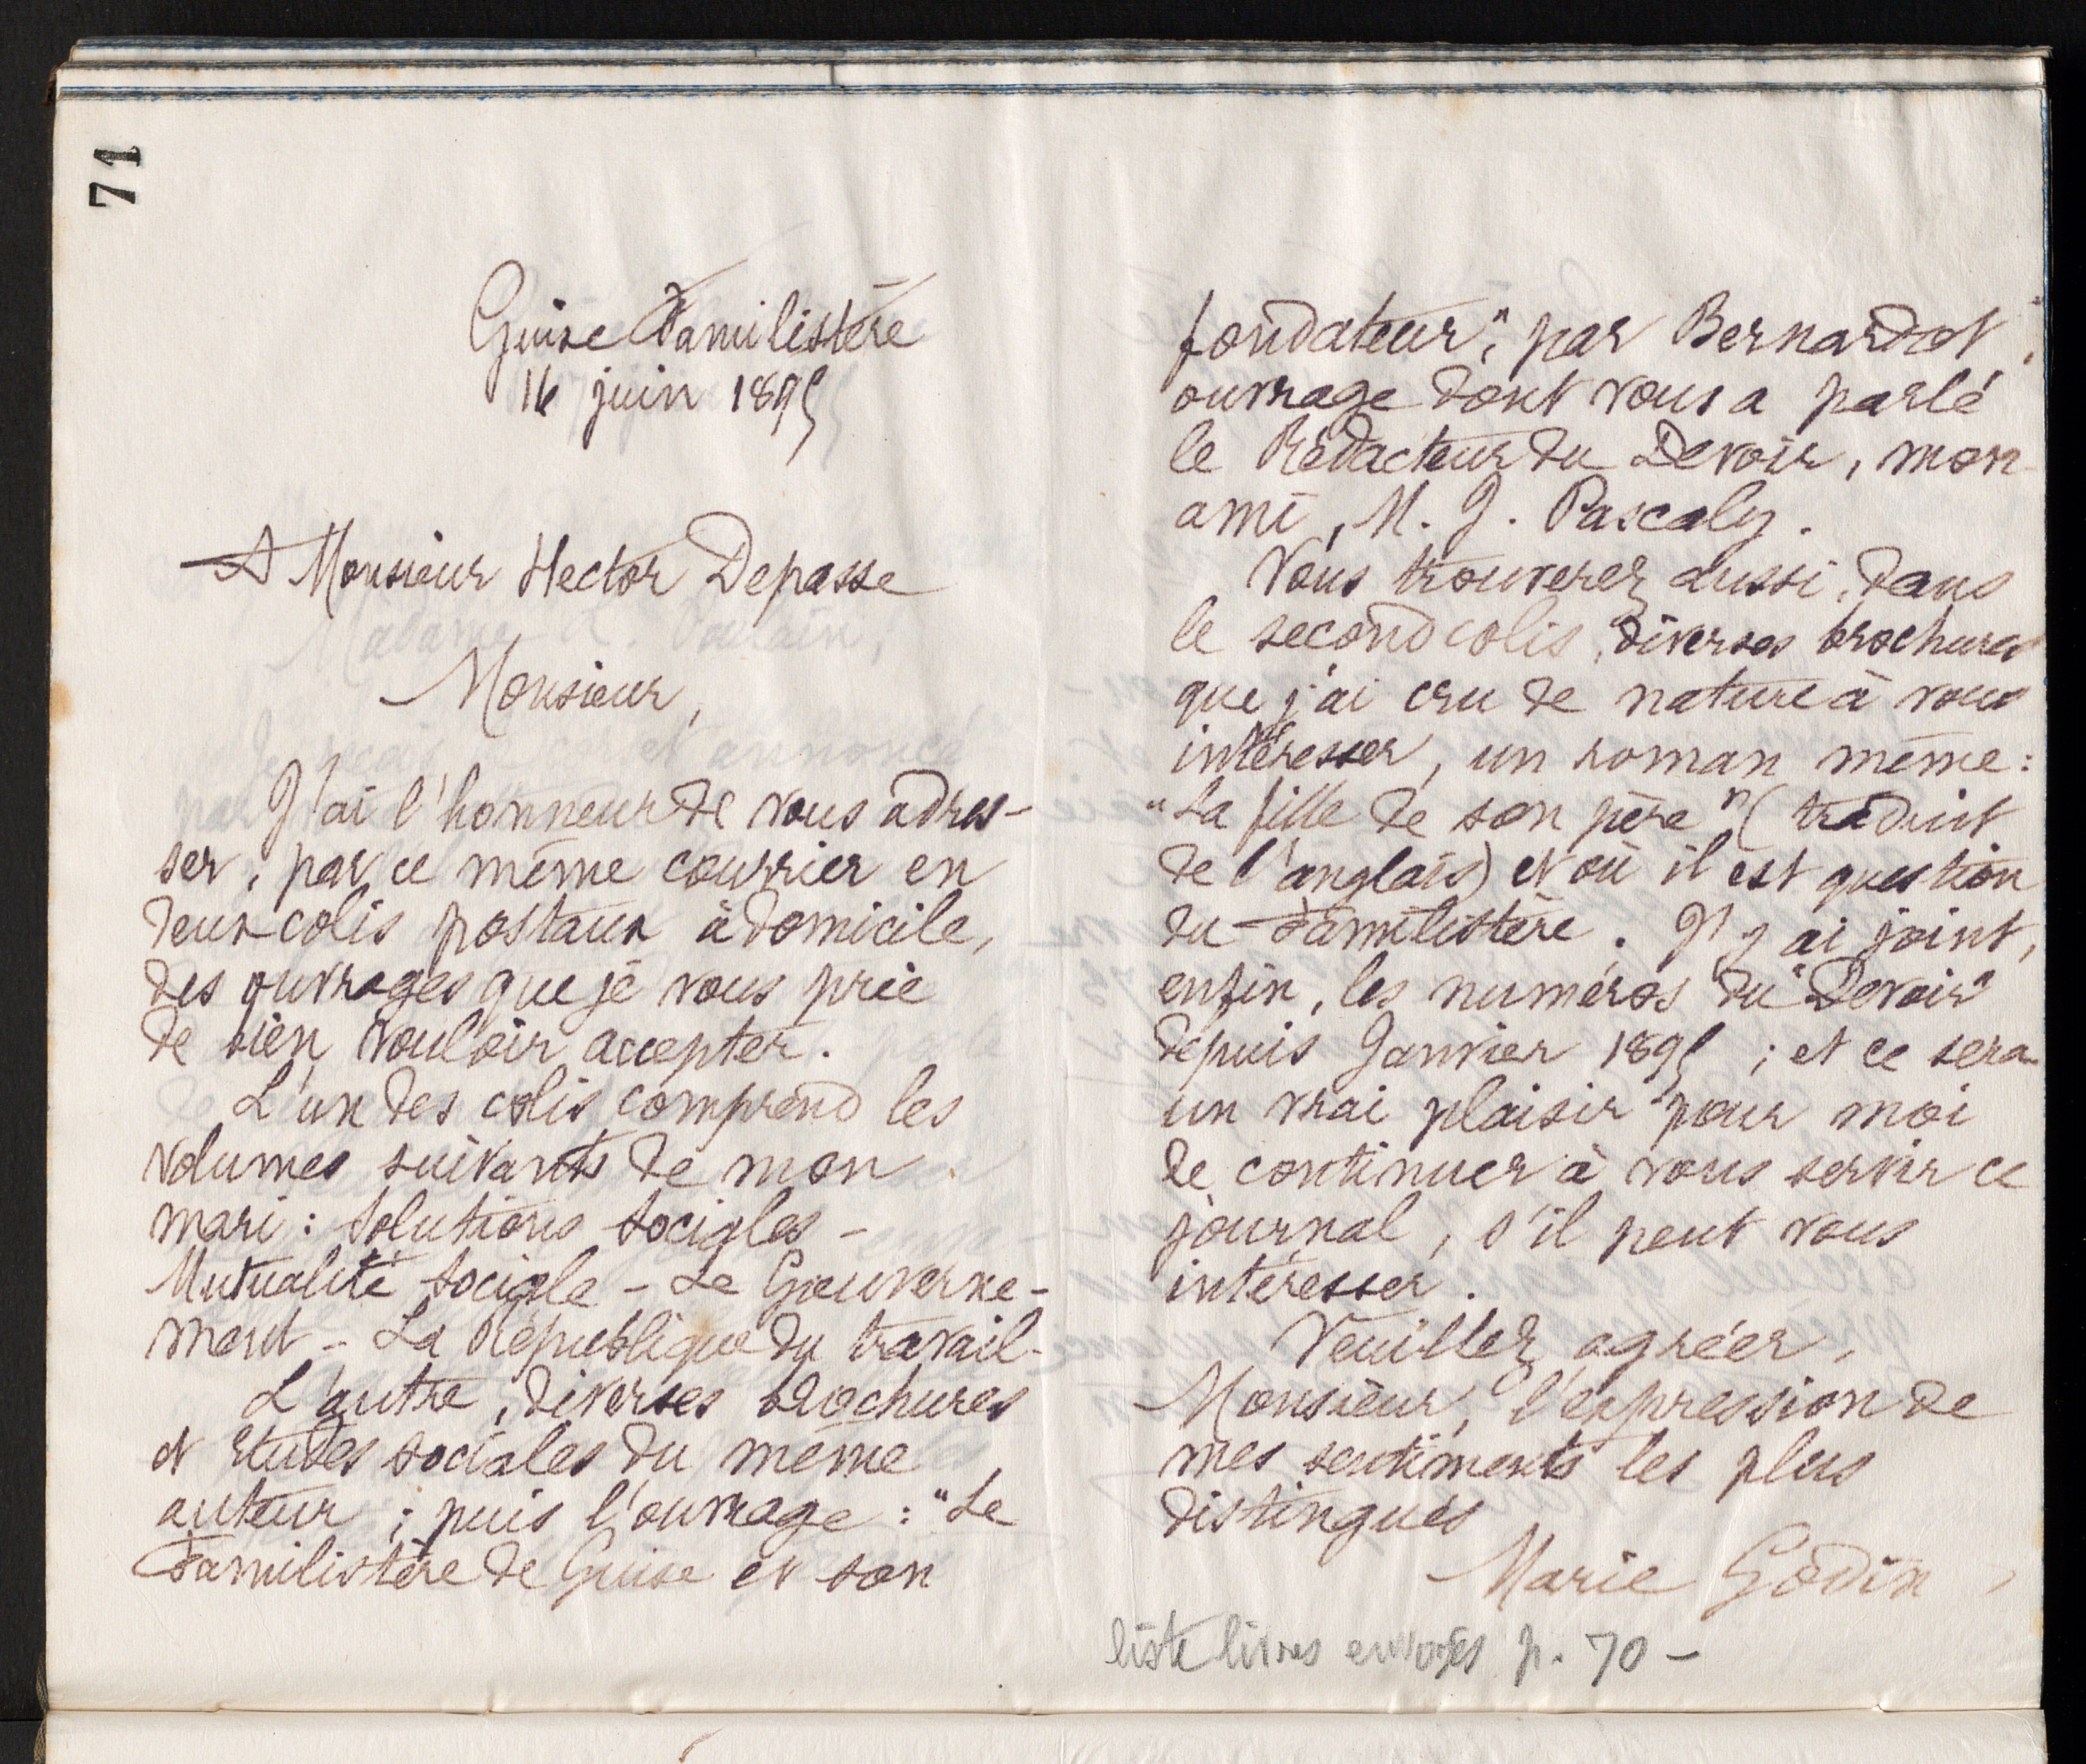 71
Guise Familistère
16 juin 1895
A Monsieur Hector Depasse
Monsieur,
J'ai l'honneur de vous adres-
ser, par ce même courrier en
deux colis postaux à domicile,
des ouvrages que je vous prie
de bien vouloir accepter.
L'un des colis comprend les
volumes suivants de mon
mari : Solutions Sociales -
Mutualité Sociale - Le Gouverne-
ment - La République du travail -
L'autre, diverses brochures
et Études sociales du même
auteur ; puis l'ouvrage : "Le
Familistère de Guise et son
fondateur", par Bernardot,
ouvrage dont vous a parlé
le Rédacteur du Devoir, mon
ami, M. J. Pascaly.
Vous trouverez aussi, dans
le second colis, diverses brochures
que j'ai cru de nature à vous
intéresser, un roman même :
"La fille de son père" (traduit
de l'anglais) et où il est question
du Familistère. J'y ai joint,
enfin, les numéros du "Devoir"
depuis Janvier 1895 ; et ce sera
un vrai plaisir pour moi
de continuer à vous servir ce
journal, s'il peut vous
intéresser.
Veuillez agréer,
Monsieur, l'expression de
mes sentiments les plus
distingués
Marie Godin
liste livres envoyés p. 70 -